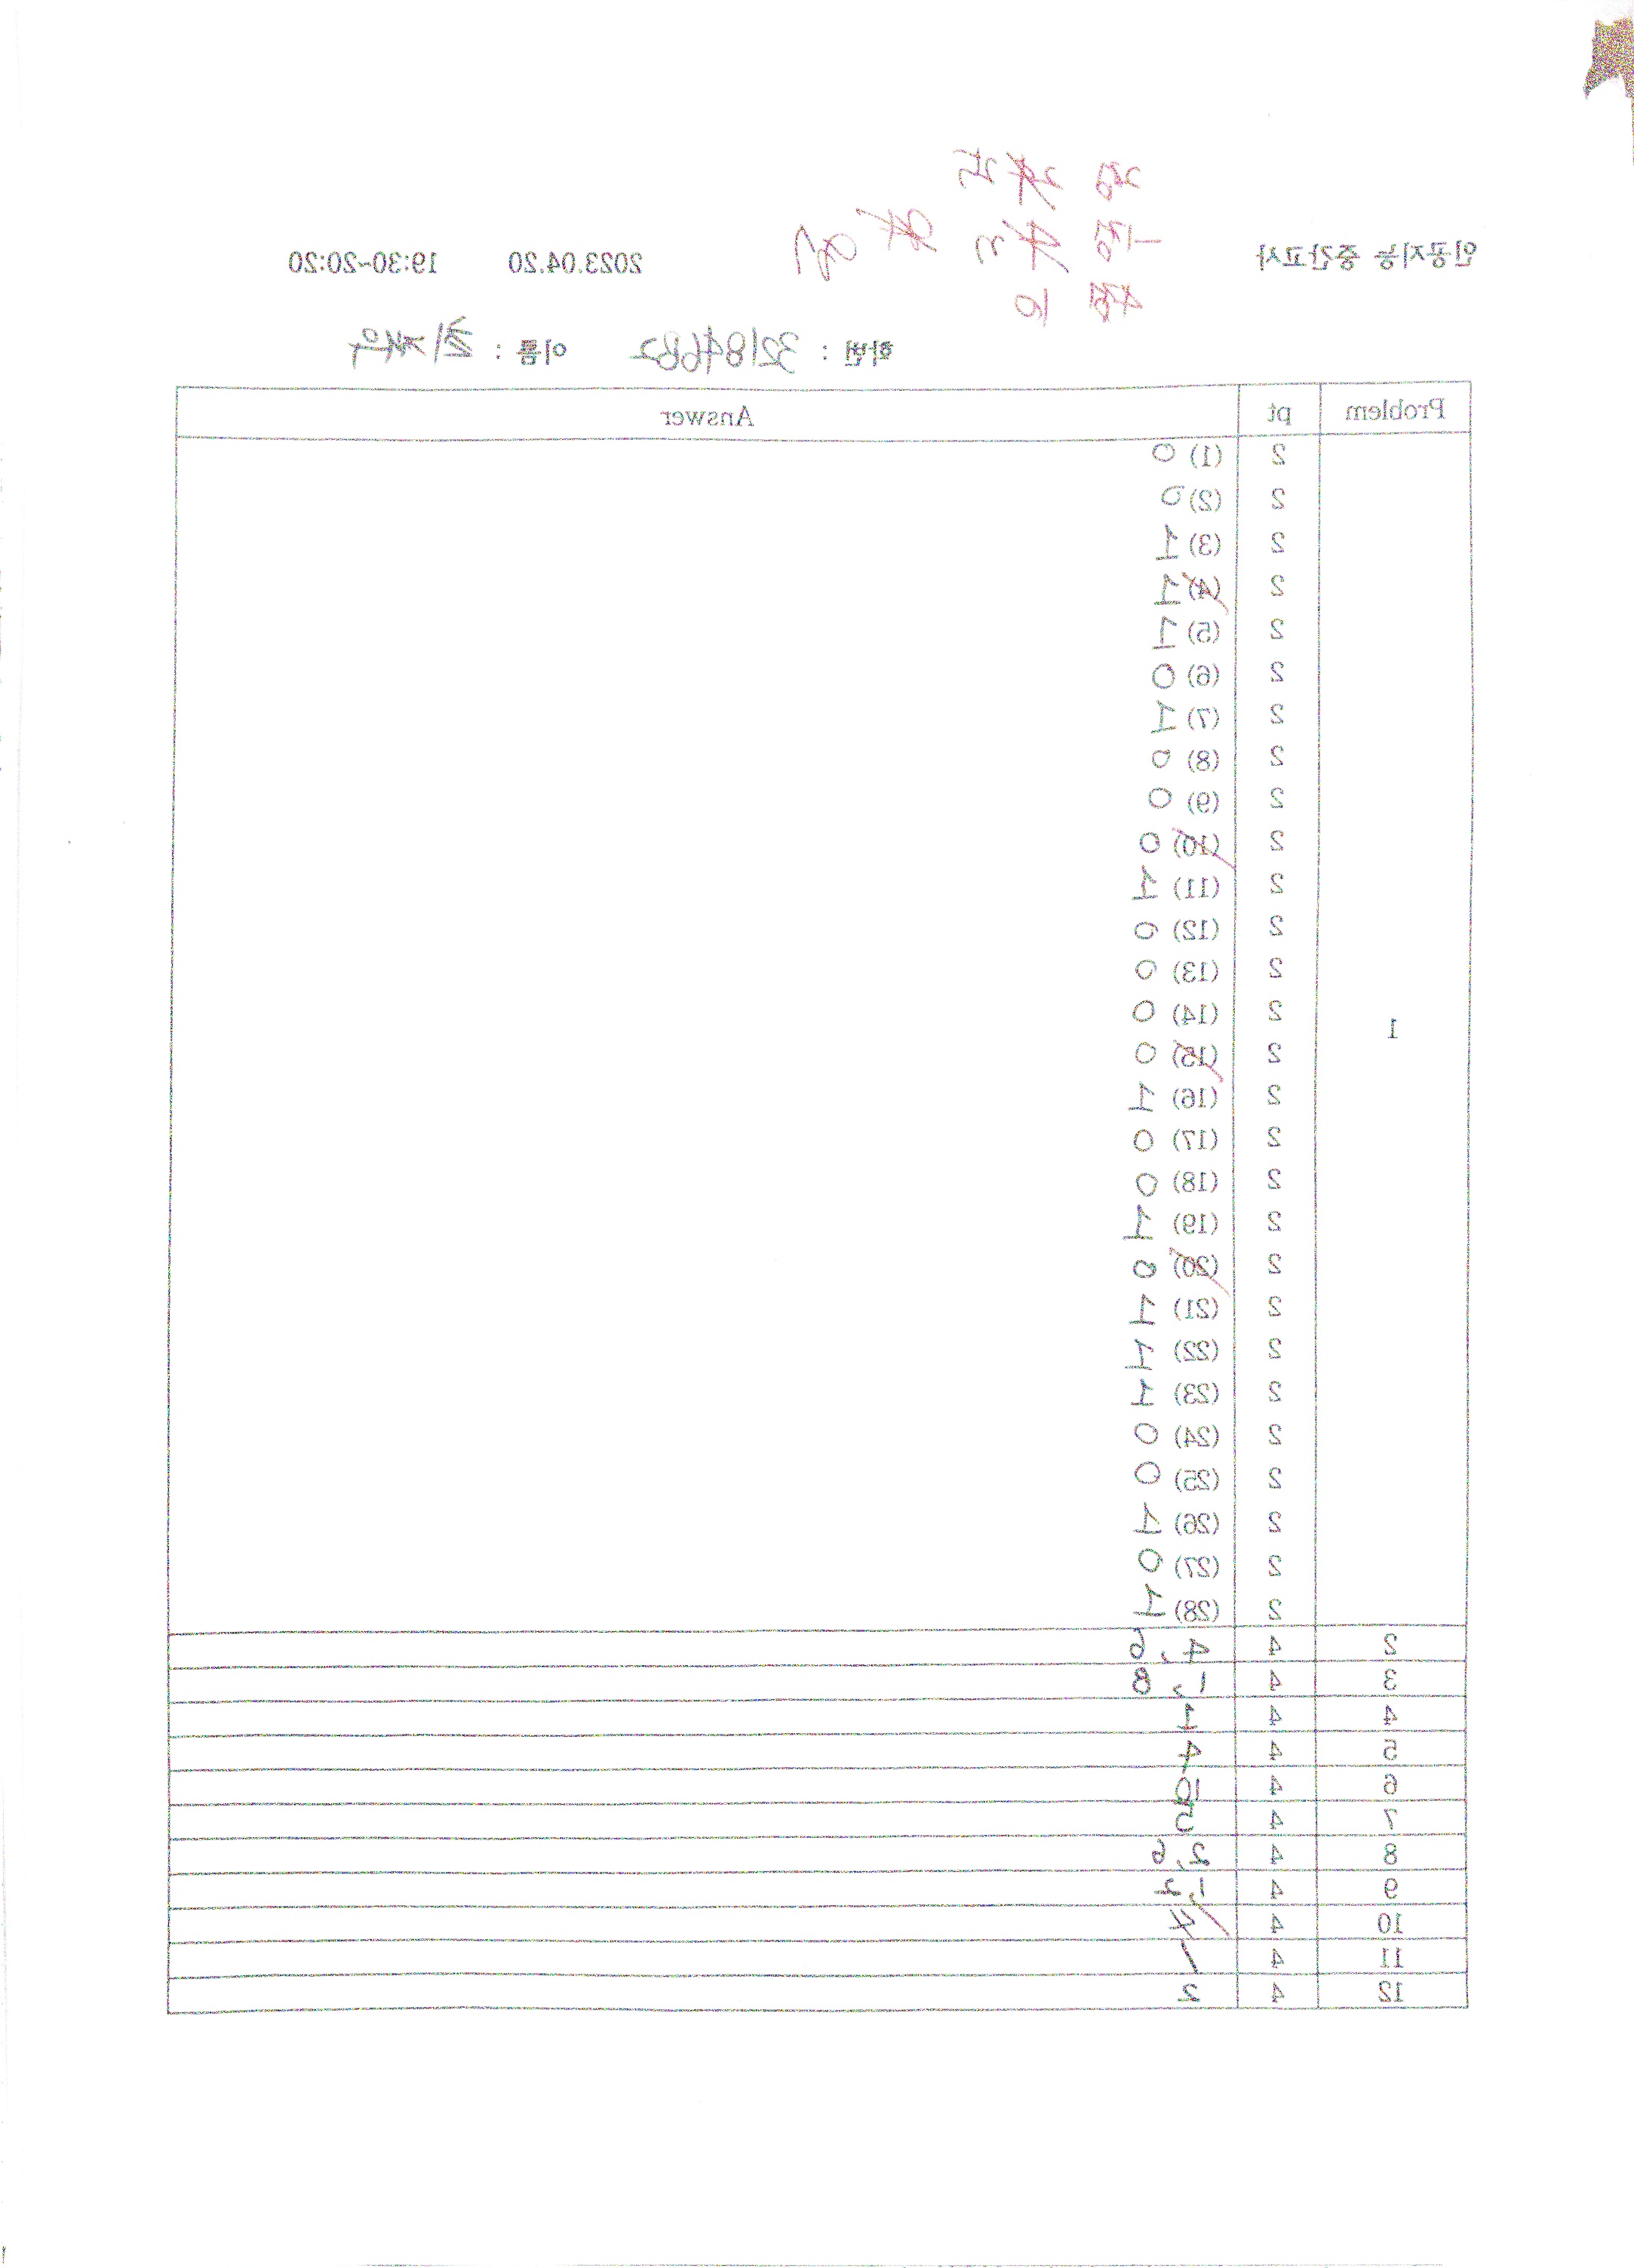 인공지능 중간고사 2023.04.20 19:30~20:20
2점
1점
4점 10
학번 : 32184682 이름 : 최재혁
Problem pt Answer
1
2 (1) 0
2 (2) 0
2 (3) 1
2 (4) 1
2 (5) 1
2 (6) 0
2 (7) 1
2 (8) 0
2 (9) 0
2 (10) 0
2 (11) 1
2 (12) 0
2 (13) 0
2 (14) 0
2 (15) 0
2 (16) 1
2 (17) 0
2 (18) 0
2 (19) 1
2 (20) 0
2 (21) 1
2 (22) 1
2 (23) 1
2 (24) 0
2 (25) 0
2 (26) 1
2 (27) 0
2 (28) 1
2 4 4, 6
3 4 1, 8
4 4 1
5 4 4
6 4 10
7 4 5
8 4 2, 6
9 4 1, 2
10 4 4
11 4 1
12 4 2